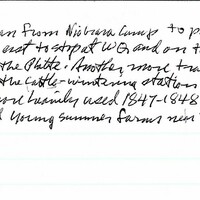 from Niobrara Camp to p
east to stop at W Grand on t
the Platte. Another, more tra
the Cattle-wintering station
more heavily used 1847-1848
young summer farms